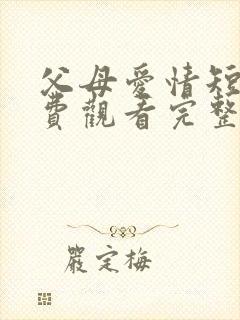 父母愛情短
費觀看完整
嚴定梅